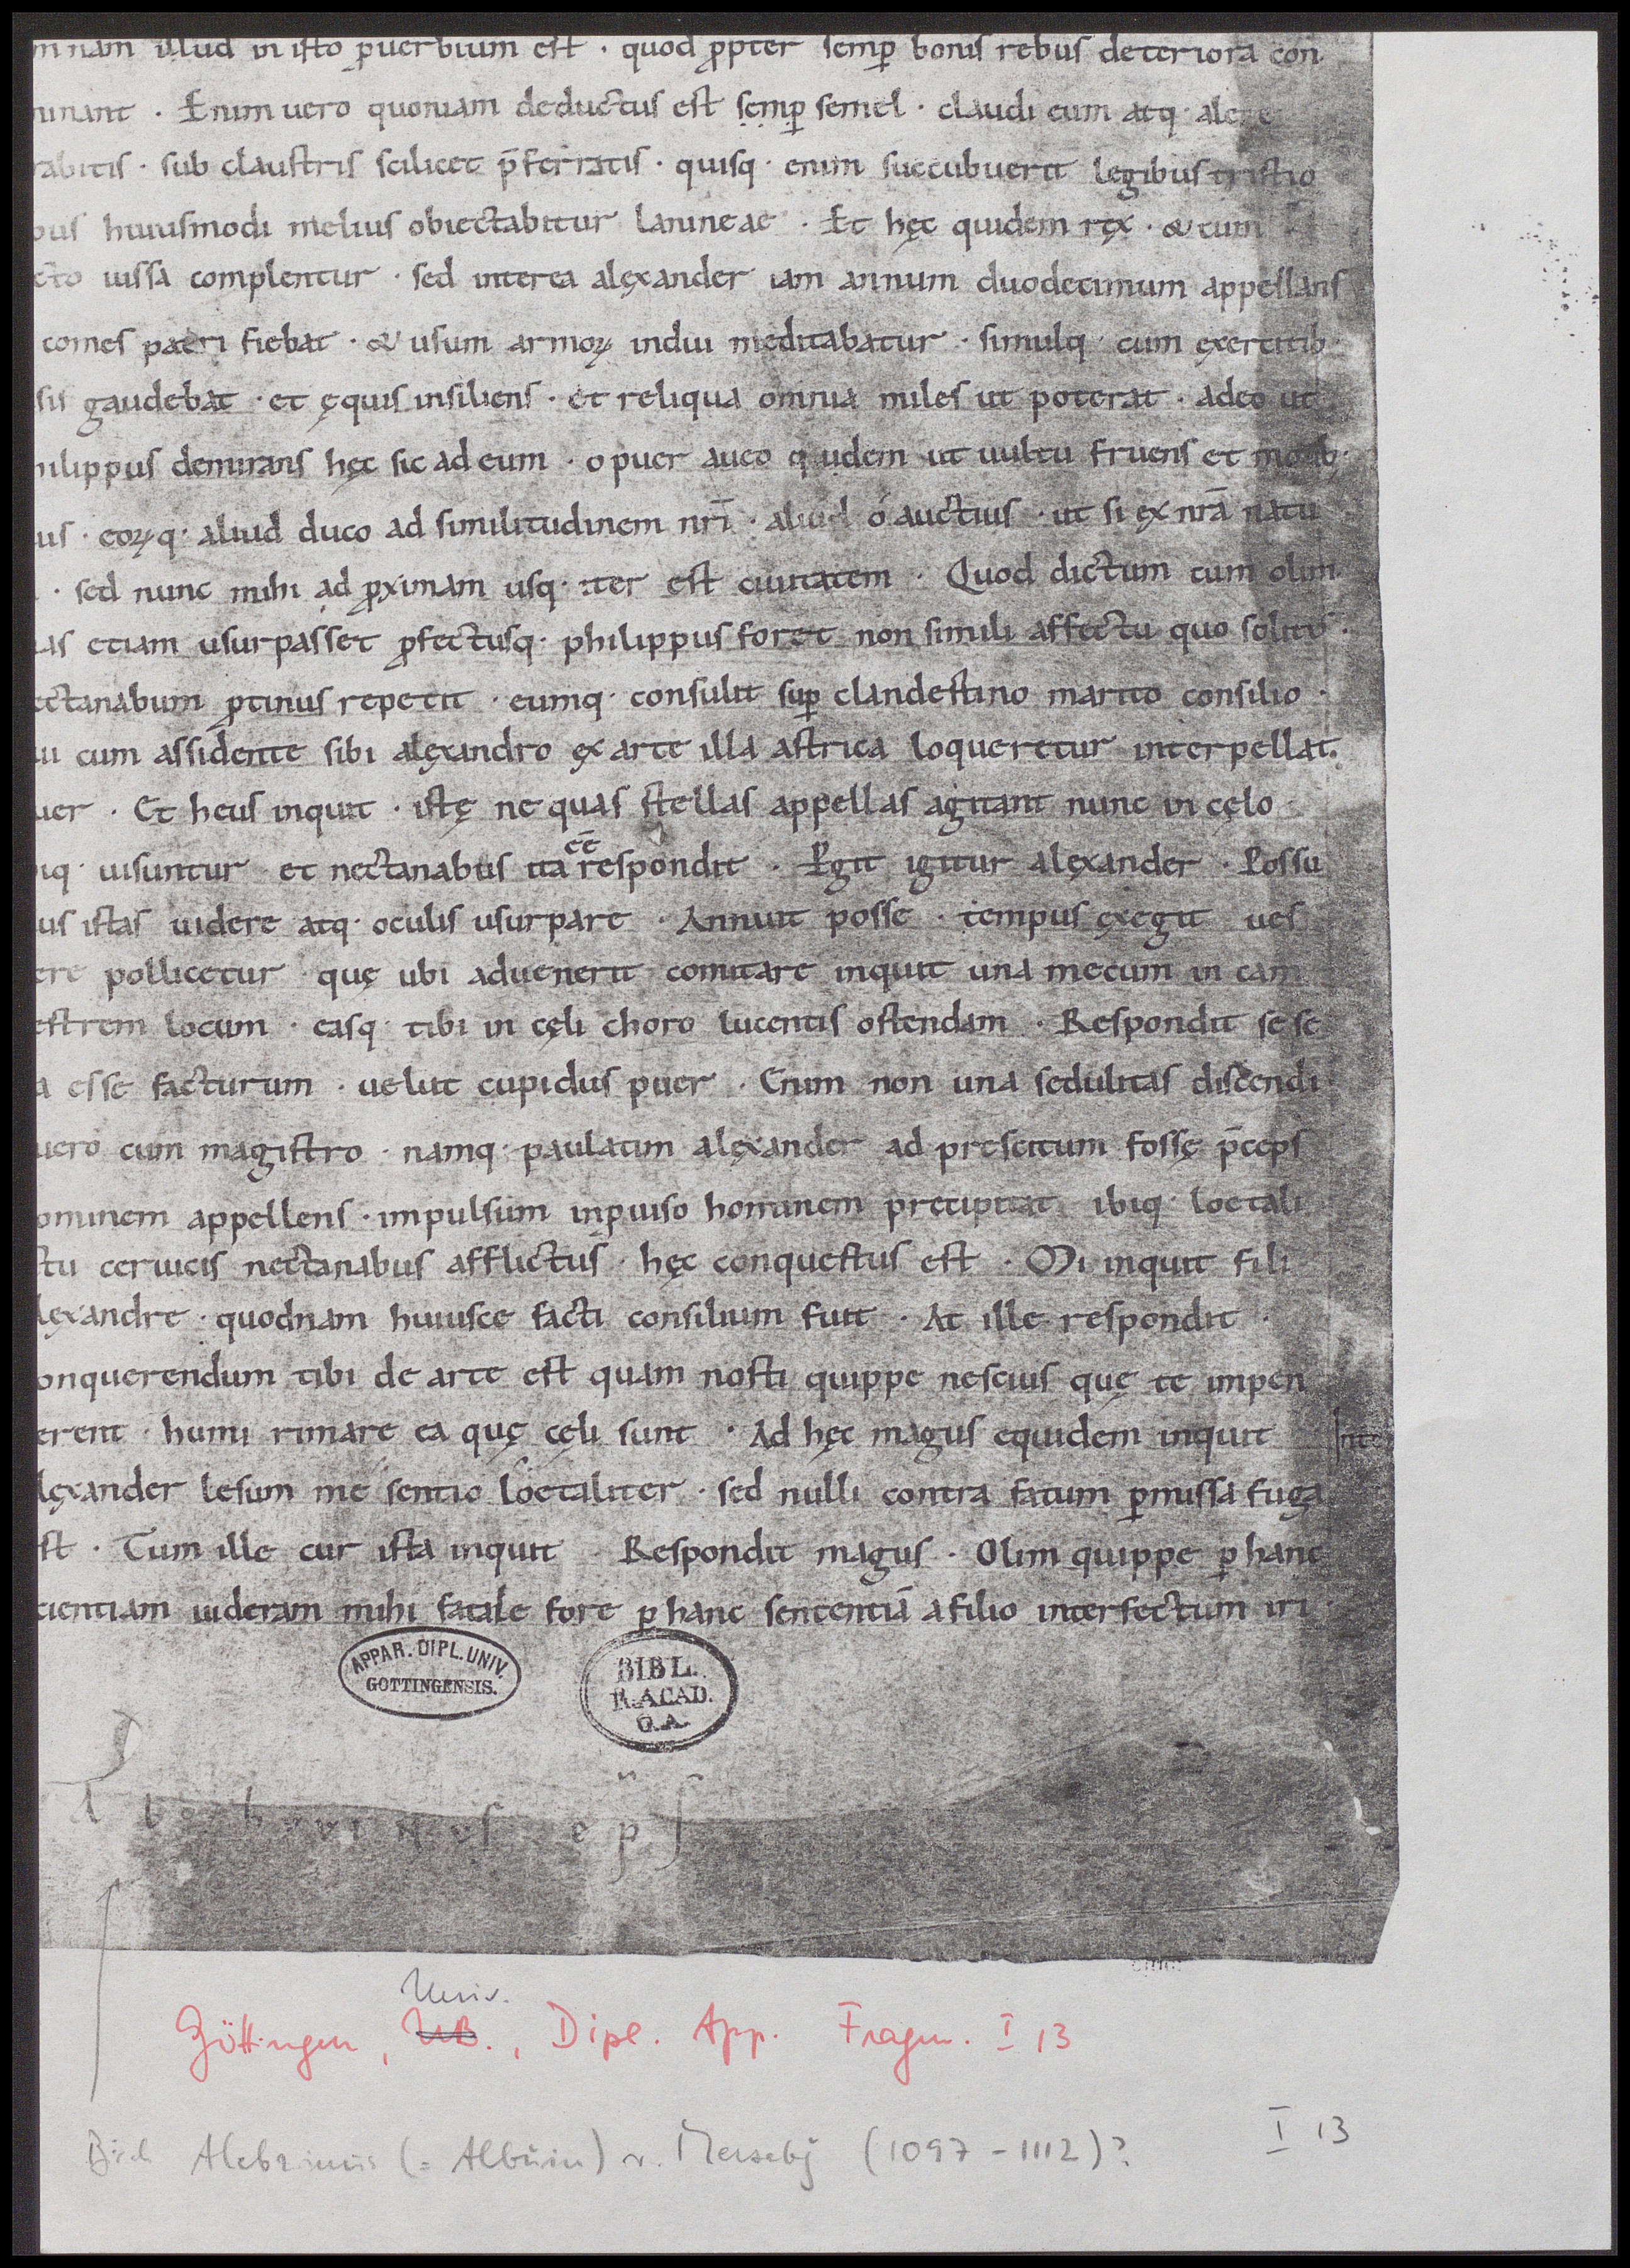 nnam illud in isto ꝓuerbium est · quod ꝓpter semꝑ bonis rebus deteriora con
ninant · Enim uero quoniam deductus est semꝑ semel · claudi eum atq· alere
rabitis · sub claustris scilicet p̄ferratis · quisq· enim succubuerit legibus tristio
bus huiusmodi melius obiectabitur lanineae · Et hęc quidem rex · & cum
cto iussa complentur · sed interea alęxander iam annum duodecimum appellans
comes patri fiebat · & usum armoꝝ indui meditabatur · simulq· cum ęxercitib·
sis gaudebat · et ęquis insiliens · et reliqua omnia miles ut poterat · adeo ut
hilippus demirans hęc sic ad eum · o puer aueo quidem ut uultu fruens et morib·
uis · eoꝝq· aliud duco ad similitudinem nr̄i · aliud o auctius · ut si ęx nr̄a natu
· sed nunc mihi ad ꝓximam usq· iter est ciuitatem · Quod dictum cum olim
ias etiam usurpasset ꝓfectusq· philippus foret non simili affectu quo solitus ·
ectanabum ꝓtinus repetit · eumq· consulit suꝑ clandestino marito consilio ·
ui cum assidente sibi alęxandro ęx arte illa astrica loqueretur interpellat.
uer · Et heus inquit · istę ne quas stellas appellas agitant nunc in cęlo
ēē
biq· uisuntur et nectanabus ita respondit · Egit igitur alęxander · Possu
us istas uidere atq· oculis usurpare · Annuit posse · tempus ęxegit ues
ere pollicetur quę ubi aduenerit comitare inquit una mecum in cam
estrem locum · easq· tibi in cęli choro lucentis ostendam · Respondit se se
a esse facturum · uelut cupidus puer · Enim non una sedulitas discendi
uero cum magistro · namq· paulatim alęxander ad prescitum fossę p̄ceps
ominem appellens · impulsum inꝓuiso hominem precipitat ibiq· loetali
ctu ceruicis nectanabus afflictus · hęc conquestus est · Mi inquit fili
lęxandre · quodnam huiusce facti consilium fuit · At ille respondit ·
onquerendum tibi de arte est quam nosti quippe nescius quę te impen
erent · humi rimare ea quę cęli sunt · Ad hęc magus equidem inquit
lęxander lesum me sentio loetaliter · sed nulli contra fatum ꝑmissa fuga
st · Tum ille cur ista inquit · Respondit magus · Olim quippe ꝑ hanc
cientiam uideram mihi fatale fore ꝑ hanc sententiā a filio interfectum iri ·
APPAR. DIPL. UNIV. GOTTINGENSIS.
BIBL. R. ACAD. G. A.
Univ.
Göttingen, UB., Dipl. App. Fragm. I 13
I 13
Bisch Alebrinus (= Albuin) v. Mersebg (1097-1112)?